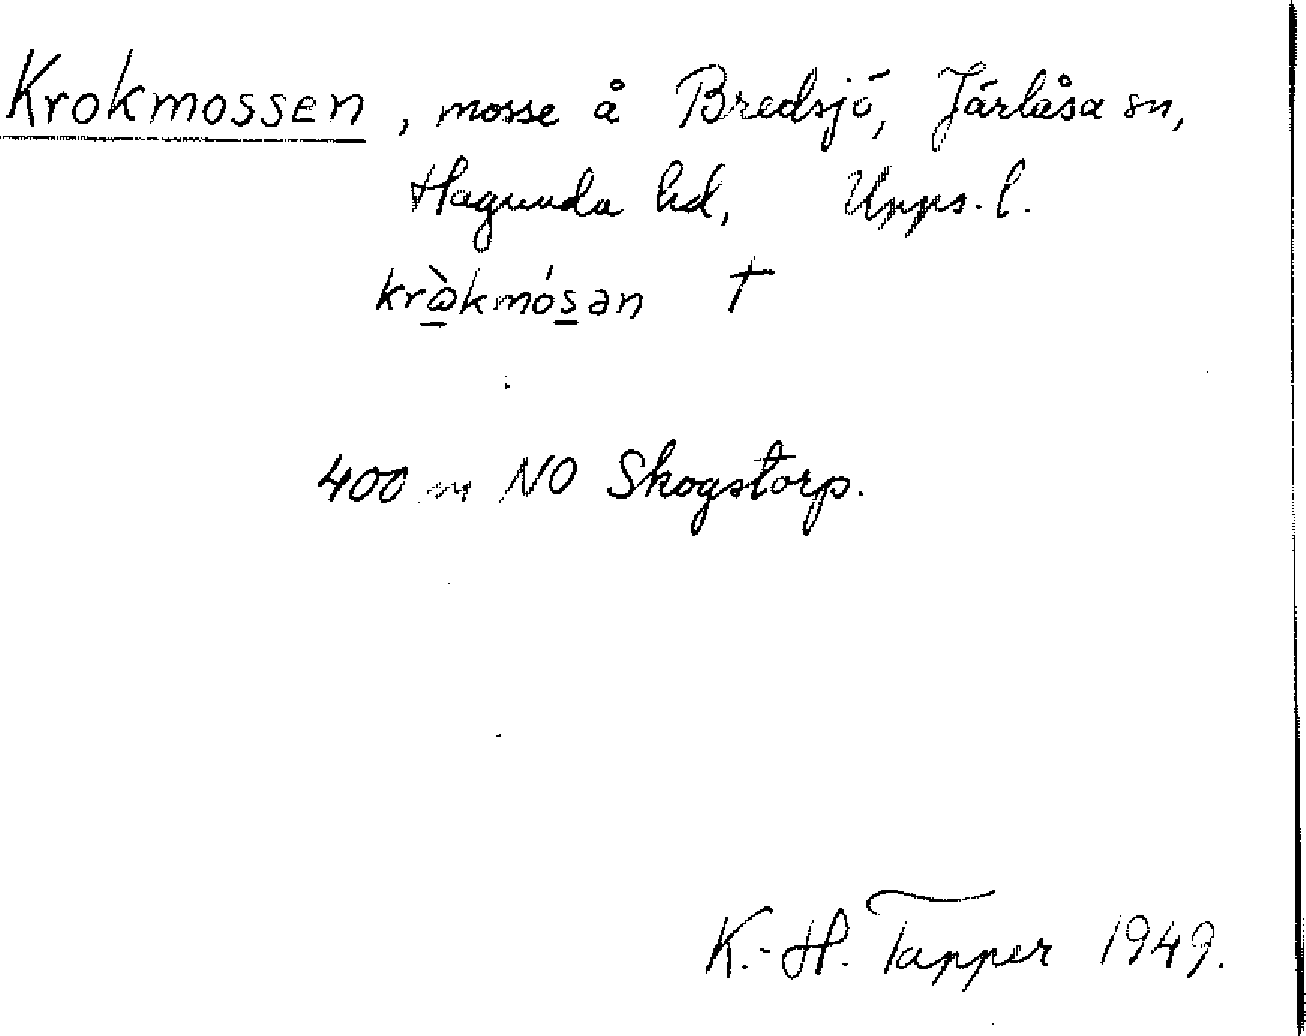 Krokmossen, mosse å Bredsjö, Järlåsa sn,
Hagunda hd, Upps. l.
†
400 m NO Skogstorp.
K.-H. Tapper 1949.